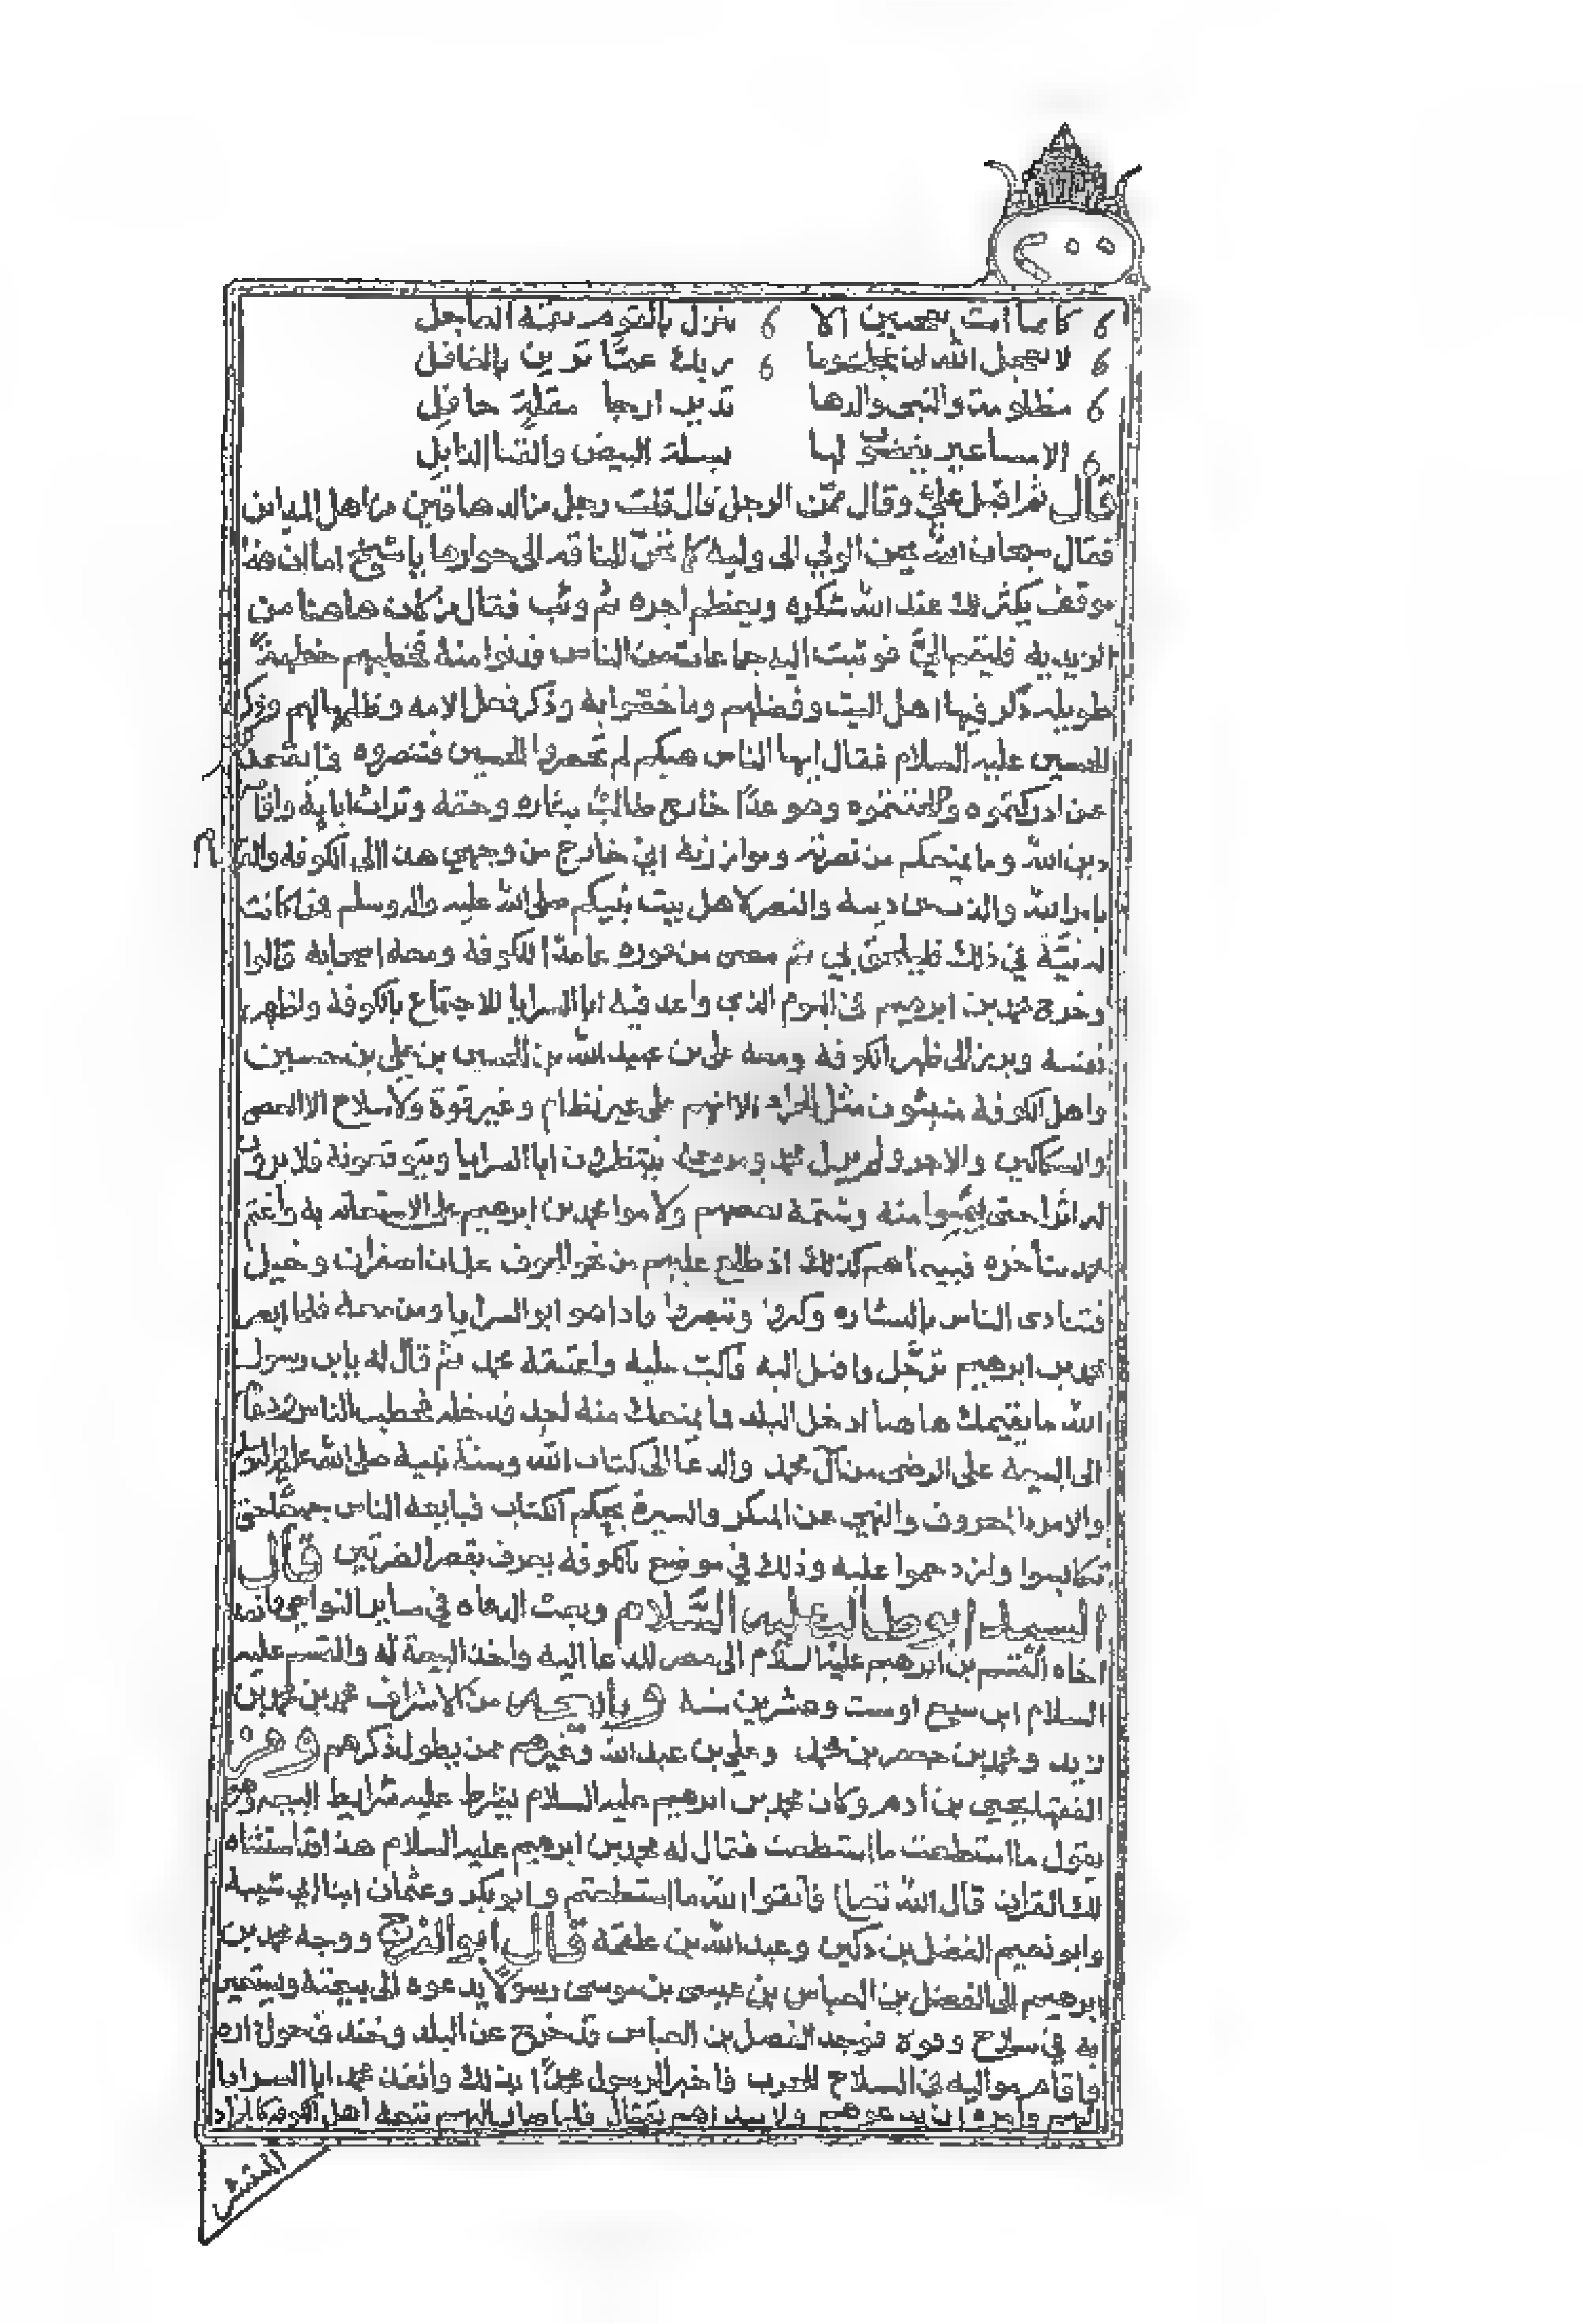 كانما انت بعجبين الا ينزل بالقوم نقمة العاجل
لا يعجل الله ان عجلت وما ربك عما ترين بالغافل
مظلومة والنبي والدها تدير ارجا مقلة حافل
الا مساعير يغضبون لها بسلة البيض والقنا الذابل
قال ثم اقبل علي وقال ممن الرجل قال قلت رجل من الدهاقين من اهل المداين
فقال سبحان الله يحن الولي الى وليه كما تحن الناقه الى حوارها يا شيخ اما ان هذا
موقف يكثر لك عند الله شكره ويعظم اجره ثم وثب فقال من كان هاهنا من
الزيديه فليقم الي فوثبت اليه جماعات من الناس فدنوا منه فخطبهم خطبة
طويله ذكر فيها اهل البيت وفضلهم وما خصوا به وذكر فعل الامه وظلمها لهم وذكر
الحسين عليه السلام فقال ايها الناس هبكم لم تحضروا الحسين فتنصروه فما يقعدكم
عن ادركتموه ولحقتموه وهو غدا خارج طالب بثاره وحقه وتراث ابايه واقامة
دين الله وما يمنعكم من نصرته وموازرته اني خارج من وجهي هذا الى الكوفه والقيام
بامر الله والذب عن دينه والنصر لاهل بيت نبيكم صلى الله عليه واله وسلم فمن كانت
له نية في ذلك فليلحق بي ثم مضى من فوره عامدا الكوفة ومعه اصحابه قالوا
وخرج محمد بن ابرهيم في اليوم الذي واعد فيه ابا السرايا للاجتماع بالكوفة واظهر
نفسه وبرز الى ظهر الكوفة ومعه علي بن عبيد الله بن الحسين بن علي بن حسين
واهل الكوفة منبثون مثل الجراد الا انهم على غير نظام وغير قوة ولا سلاح الا العصي
والسكاكين والاجر ولم يزل محمد ومن معه ينتظرون ابا السرايا ويتوقعونه فلا يرون
له اثرا حتى ايسوا منه وشتمه بعضهم ولاموا محمد بن ابرهيم على الاستعانة به واغتم
محمد بتأخره فبيناهم كذلك اذ طلع عليهم من نحو الجرف علمان اصفران وخيل
فتنادى الناس بالبشاره وكبروا وتبصروا فاذا هو ابو السرايا ومن معه فلما ابصر
محمد بن ابرهيم ترجل واقبل اليه فاكب عليه واعتنقه محمد ثم قال له يابن رسول
الله ما يقيمك هاهنا ادخل البلد فما يمنعك منه احد فدخله فخطب الناس ودعاهم
الى البيعة على الرضى من آل محمد والدعا الى كتاب الله وسنة نبيه صلى الله عليه واله وسلم
والامر بالمعروف والنهي عن المنكر والسيرة بحكم الكتاب فبايعه الناس جميعا حتى
تكابسوا وازدحموا عليه وذلك في موضع بالكوفه يعرف بقصر الضرتين قال
السيد ابو طالب عليه السلام وبعث الدعاه في ساير النواحي وانفذ
اخاه القسم بن ابرهيم عليهما السلام الى مصر للدعا اليه واخذ البيعة له والقسم عليه
السلام ابن سبع او ست وعشرين سنة وبايعه من الاشراف محمد بن محمد بن
زيد ومحمد بن جعفر بن محمد وعلي بن عبيد الله وغيرهم ممن يطول ذكرهم ومن
الفقها يحيى بن آدم وكان محمد بن ابرهيم عليه السلام يشترط عليه شرايط البيعه وهو
يقول ما استطعت ما استطعت فقال له محمد بن ابرهيم عليه السلام هذا قد استثناه
لك القران قال الله تعالى فاتقوا الله ما استطعتم وابو بكر وعثمان ابنا ابي شيبة
وابو نعيم الفضل بن دكين وعبد الله بن علقمة قال ابو الفرج ووجه محمد بن
ابرهيم الى الفضل بن العباس بن عيسى بن موسى رسولا يدعوه الى بيعته ويستعين
به في سلاح وقوة فوجد الفضل بن العباس قد خرج عن البلد وخندق حول داره
واقام مواليه في السلاح للحرب فاخبر الرسول محمدا بذلك وانفذ محمد ابا السرايا
اليهم وامره ان يدعوهم ولا يبداهم بقتال فلما صار اليهم تبعه اهل الكوفه كالجراد
المنتشر